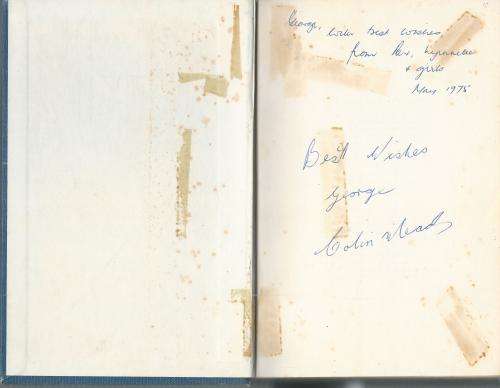 George, with best wishes,
from Rex, Lynnette
& girls
May 1975
Best Wishes
George
Colin Meads